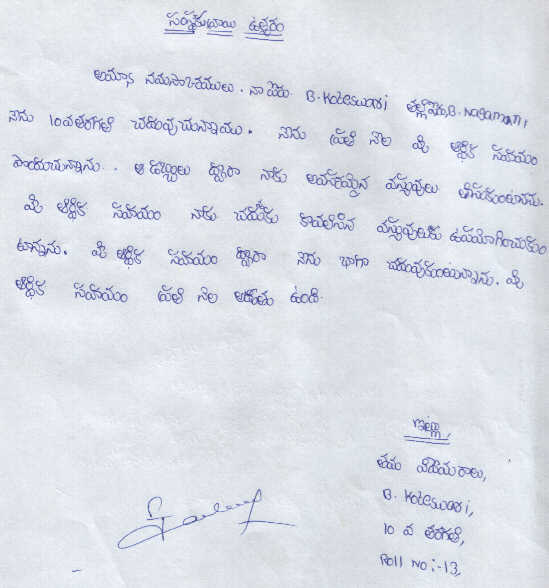 ఉత్తరం
అయ్యా నమస్కారములు. నా పేరు B. Koteswari తల్లిపేరు B. Nagamani,
నేను 10వతరగతి చదువుచున్నాము. నేను ప్రతి నెల మీ ఆర్థిక సహాయం
పొందుచున్నాను.. ఆ డబ్బులు ద్వారా నాకు అవసరమైన వస్తువులు తీసుకుంటానను.
మీ ఆర్థిక సహాయం నాకు చదువుకు కావలసిన వస్తువులకు ఉపయోగించుకుం
టున్నాను. మీ ఆర్థిక సహాయం ద్వారా నేను బాగా చదువుకుంటున్నాను. మీ
ఆర్థిక సహాయం ప్రతి నెల అందుతు ఉంది.
ఇట్లు,
తమ విదేయురాలు,
B. Koteswari,
10 వ తరగతి,
Roll No:-13,